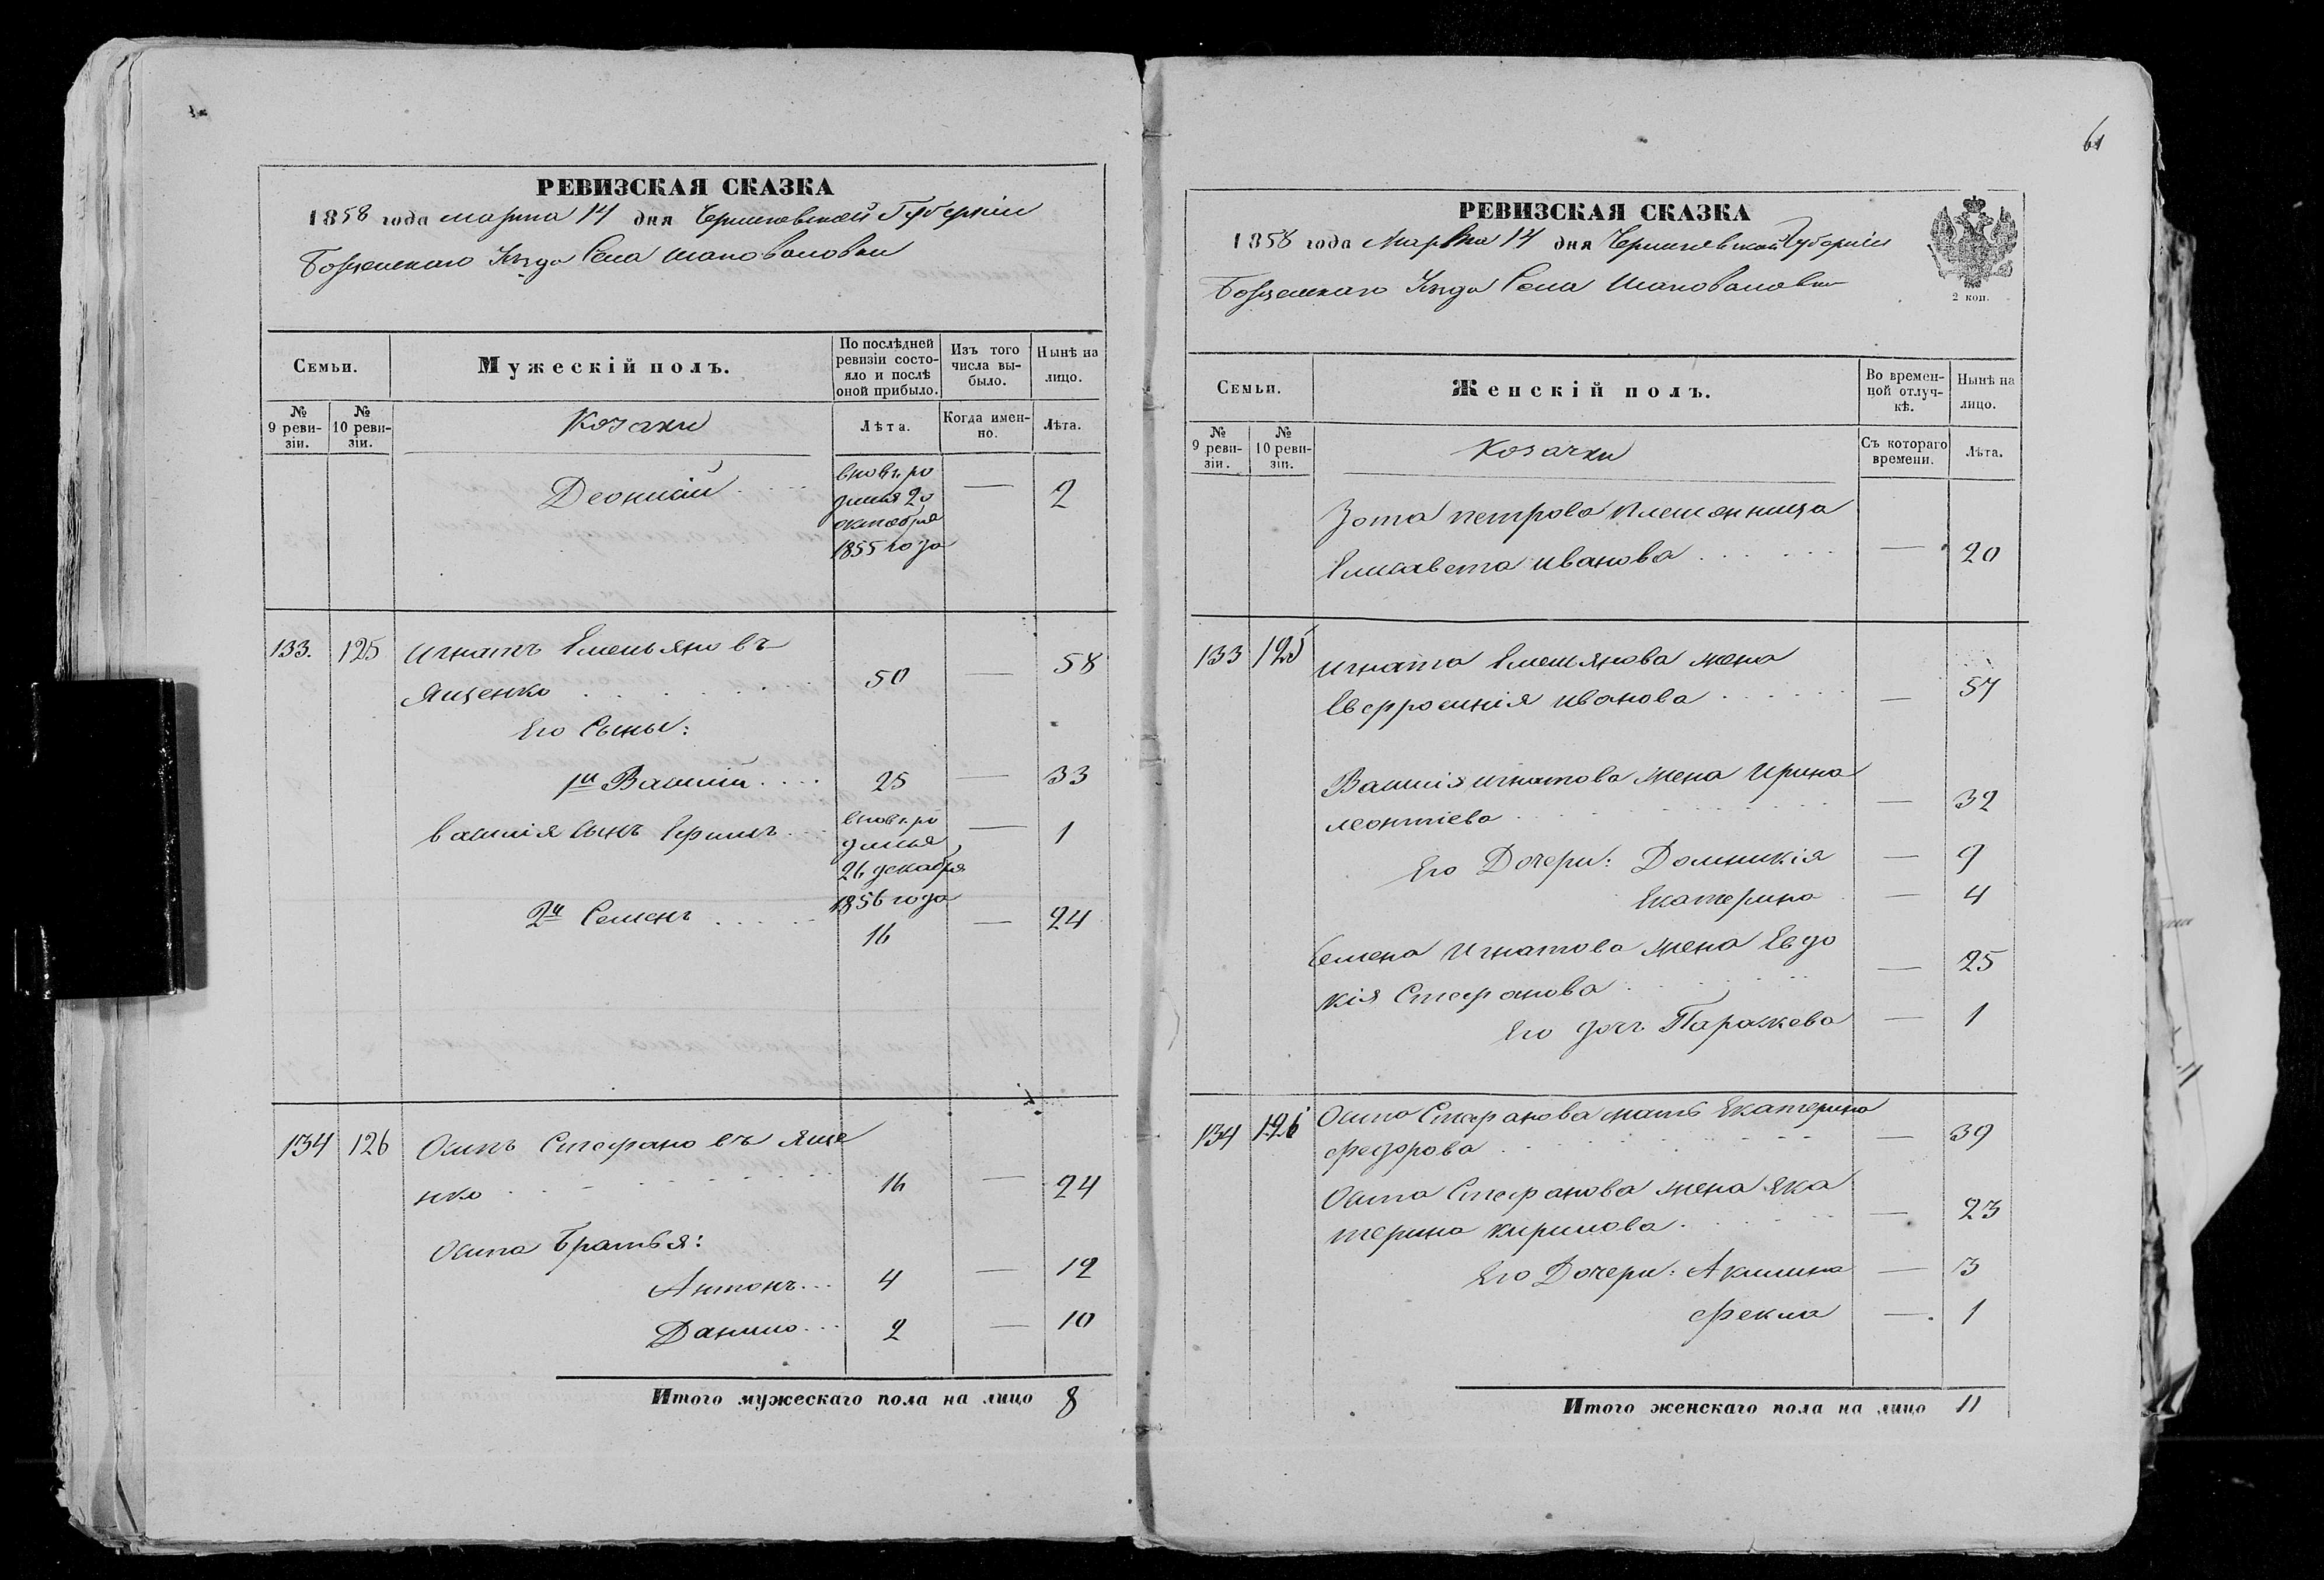 РЕВИЗСКАЯ СКАЗКА
1858 года марта 14 дня Черниговской Губернии
Борзенскаго Уезда Села Шаповаловки
Семьи.
Мужескій полъ.
По послѣдней ревизіи состояло и послѣ оной прибыло.
Изъ того числа выбыло.
Нынѣ на лицо.
№ 9 ревизіи.
№ 10 ревизіи.
Козаки
Лѣта.
Когда именно.
Лѣта.
Деонисій . . . . вновь ро — 2
дился 20
октября
1855 года
133. 125 Игнатъ Емельяновъ
Ященко . . . . . . . 50 — 58
Его Сыны:
1й Василій . . . . 25 — 33
Василія сынъ Ефимъ . . . вновь ро — 1
дился
26 декабря
1856 года
2й Семенъ . . . . . 16 — 24
134 126 Осипъ Стефановъ Яще
нко . . . . . . . . 16 — 24
Осипа Братья:
Антонъ . . . 4 — 12
Данило . . . 2 — 10
Итого мужескаго пола на лицо 8
61
РЕВИЗСКАЯ СКАЗКА
1858 года Марта 14 дня Черниговской Губернии
Борзенскаго Уезда Села Шаповаловки
2 коп.
Семьи.
Женскій полъ.
Во временной отлучкѣ.
Нынѣ на лицо.
№ 9 ревизіи.
№ 10 ревизіи.
Козачки
Съ котораго времени.
Лѣта.
Зота петрова племенница
Елисавета Иванова . . . . . . — 20
133 125 Игната Емельянова жена
Евфросинія Иванова . . . . . . — 57
Василія Игнатова жена Ирина
леонтіева . . . . . . . . . — 32
Его Дочери: Домникія — 9
Екатерина — 4
Семена Игнатова жена Евдо
кія Стефанова . . . . . . — 25
Его дочь Параскева — 1
134 126 Осипа Стефанова мать Екатерина
Федорова . . . . . . . . — 39
Осипа Стефанова жена Ека
терина Кирилова . . . . . — 23
Его Дочери: Акилина — 3
Фекла — 1
Итого женскаго пола на лицо 11